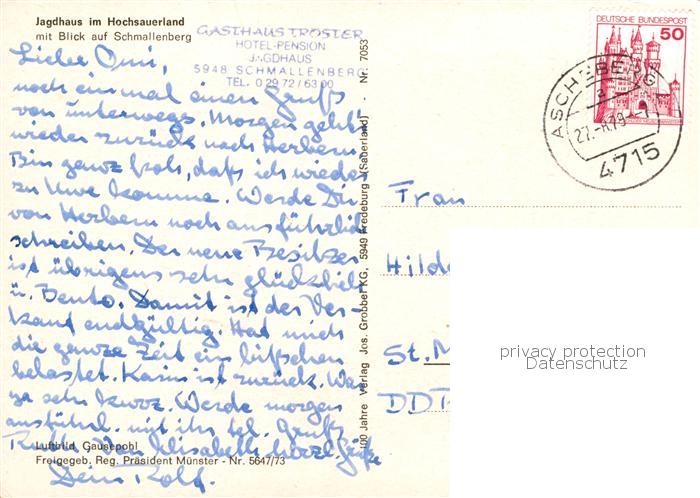 Jagdhaus im Hochsauerland
mit Blick auf Schmallenberg
GASTHAUS TRÖSTER
HOTEL-PENSION
JAGDHAUS
5948 SCHMALLENBERG
TEL. 0 29 72 / 63 00
Lieber Omi,
noch einmal einen Gruß
von unterwegs. Morgen geht's
wieder zurück nach Herbern.
Bin ganz froh, daß ich wieder
zu Uwe komme. Werde Dir
von Herbern noch ausführlich
schreiben. Der neue Besitzer
ist übrigens sehr glücklich
ü. Bento. Damit ist der Ver-
kauf endgültig. Hat mich
die ganze Zeit ein bißchen
belastet. Karin ist zurück. War
ja sehr kurz. Werde morgen
ausführl. mit ihr tel. Gruß
Ruth. Von Elisabeth herzl. Grüße
Dein Rolf
Luftbild Gausepohl
Freigegeb. Reg. Präsident Münster - Nr. 5647/73
100 Jahre Verlag Jos. Grobbel KG, 5949 Fredeburg (Sauerland) - Nr. 7053
DEUTSCHE BUNDESPOST
50
ASCHEBERG
a
27.-8.79
4715
Frau
Hilde
St. M
DDR
privacy protection
Datenschutz